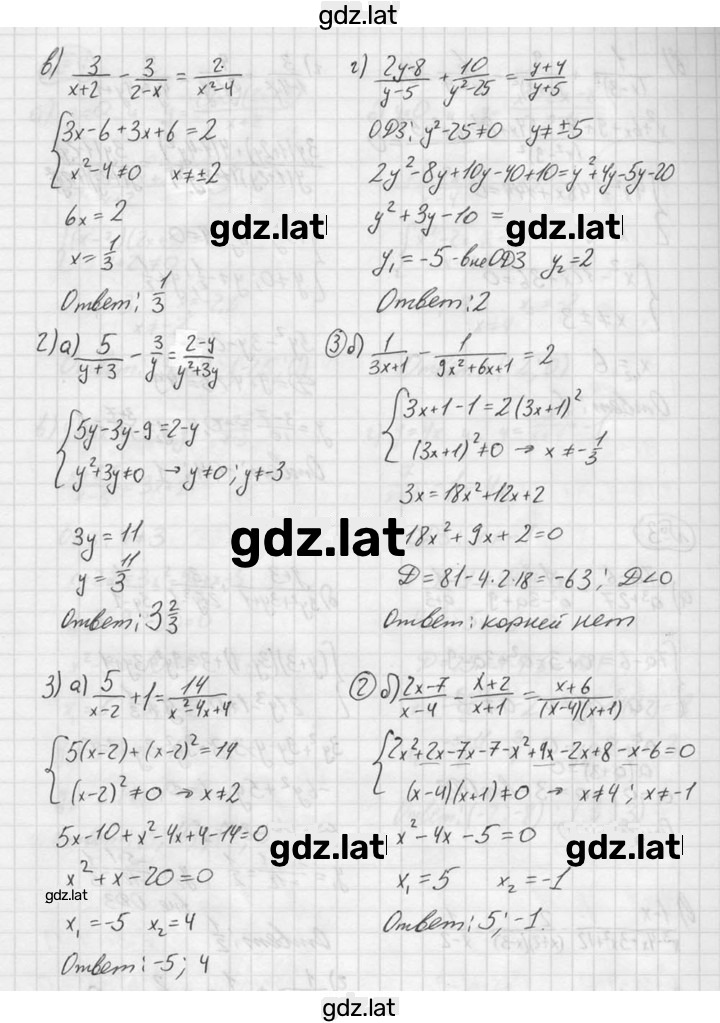 gdz.lat
в) 3/(x+2) - 3/(2-x) = 2/(x²-4)
{3x-6+3x+6=2
x²-4≠0 x≠±2
6x=2
x=1/3
Ответ: 1/3
gdz.lat
г) (2y-8)/(y-5) + 10/(y²-25) = (y+4)/(y+5)
ОДЗ: y²-25≠0 y≠±5
2y²-8y+10y-40+10=y²+4y-5y-20
y²+3y-10=
gdz.lat
y₁=-5-вне ОДЗ y₂=2
Ответ: 2
2) а) 5/(y+3) - 3/y = (2-y)/(y²+3y)
{5y-3y-9=2-y
y²+3y≠0 → y≠0; y≠-3
3y=11
y=11/3
Ответ: 3 2/3
gdz.lat
③ б) 1/(3x+1) - 1/(9x²+6x+1) = 2
{3x+1-1=2(3x+1)²
(3x+1)²≠0 → x≠-1/3
3x=18x²+12x+2
18x²+9x+2=0
D=81-4·2·18=-63; D<0
Ответ: корней нет
3) а) 5/(x-2) +1= 14/(x²-4x+4)
{5(x-2)+(x-2)²=14
(x-2)²≠0 → x≠2
5x-10+x²-4x+4-14=0
gdz.lat
x²+x-20=0
gdz.lat
x₁=-5 x₂=4
Ответ: -5; 4
② б) (2x-7)/(x-4) - (x+2)/(x+1) = (x+6)/((x-4)(x+1))
{2x²+2x-7x-7-x²+4x-2x+8-x-6=0
(x-4)(x+1)≠0 → x≠4; x≠-1
x²-4x-5=0
gdz.lat
x₁=5 x₂=-1
Ответ: 5; -1.
gdz.lat